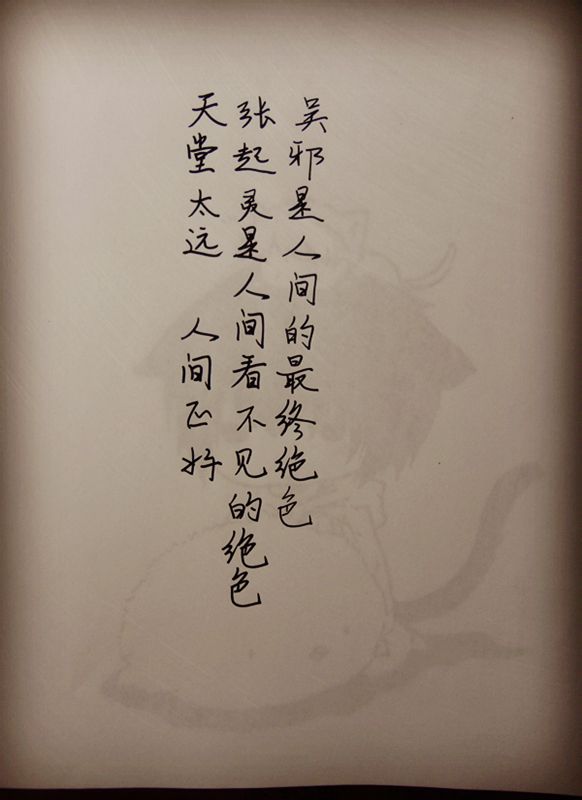 吴邪是人间的最终绝色
张起灵是人间看不见的绝色
天堂太远 人间正好